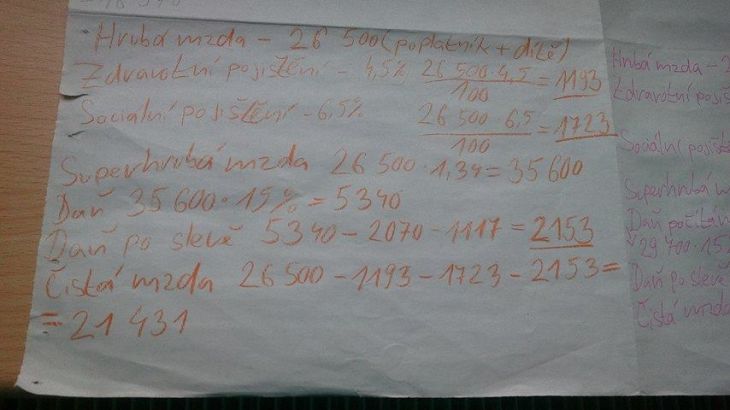 Hrubá mzda - 26 500 (poplatník + dítě)
Zdravotní pojištění - 4,5% 26 500 · 4,5 / 100 = 1193
Sociální pojištění - 6,5% 26 500 · 6,5 / 100 = 1723
Superhrubá mzda 26 500 · 1,34 = 35 600
Daň 35 600 · 15% = 5340
Daň po slevě 5340 - 2070 - 1117 = 2153
Čistá mzda 26 500 - 1193 - 1723 - 2153 =
= 21 431
Hrubá mzda - 2
Zdravotní pojiš
Sociální pojiš
Superhrubá m
Daň počítán
29 400 · 15
Daň po slevě
Čistá mzda